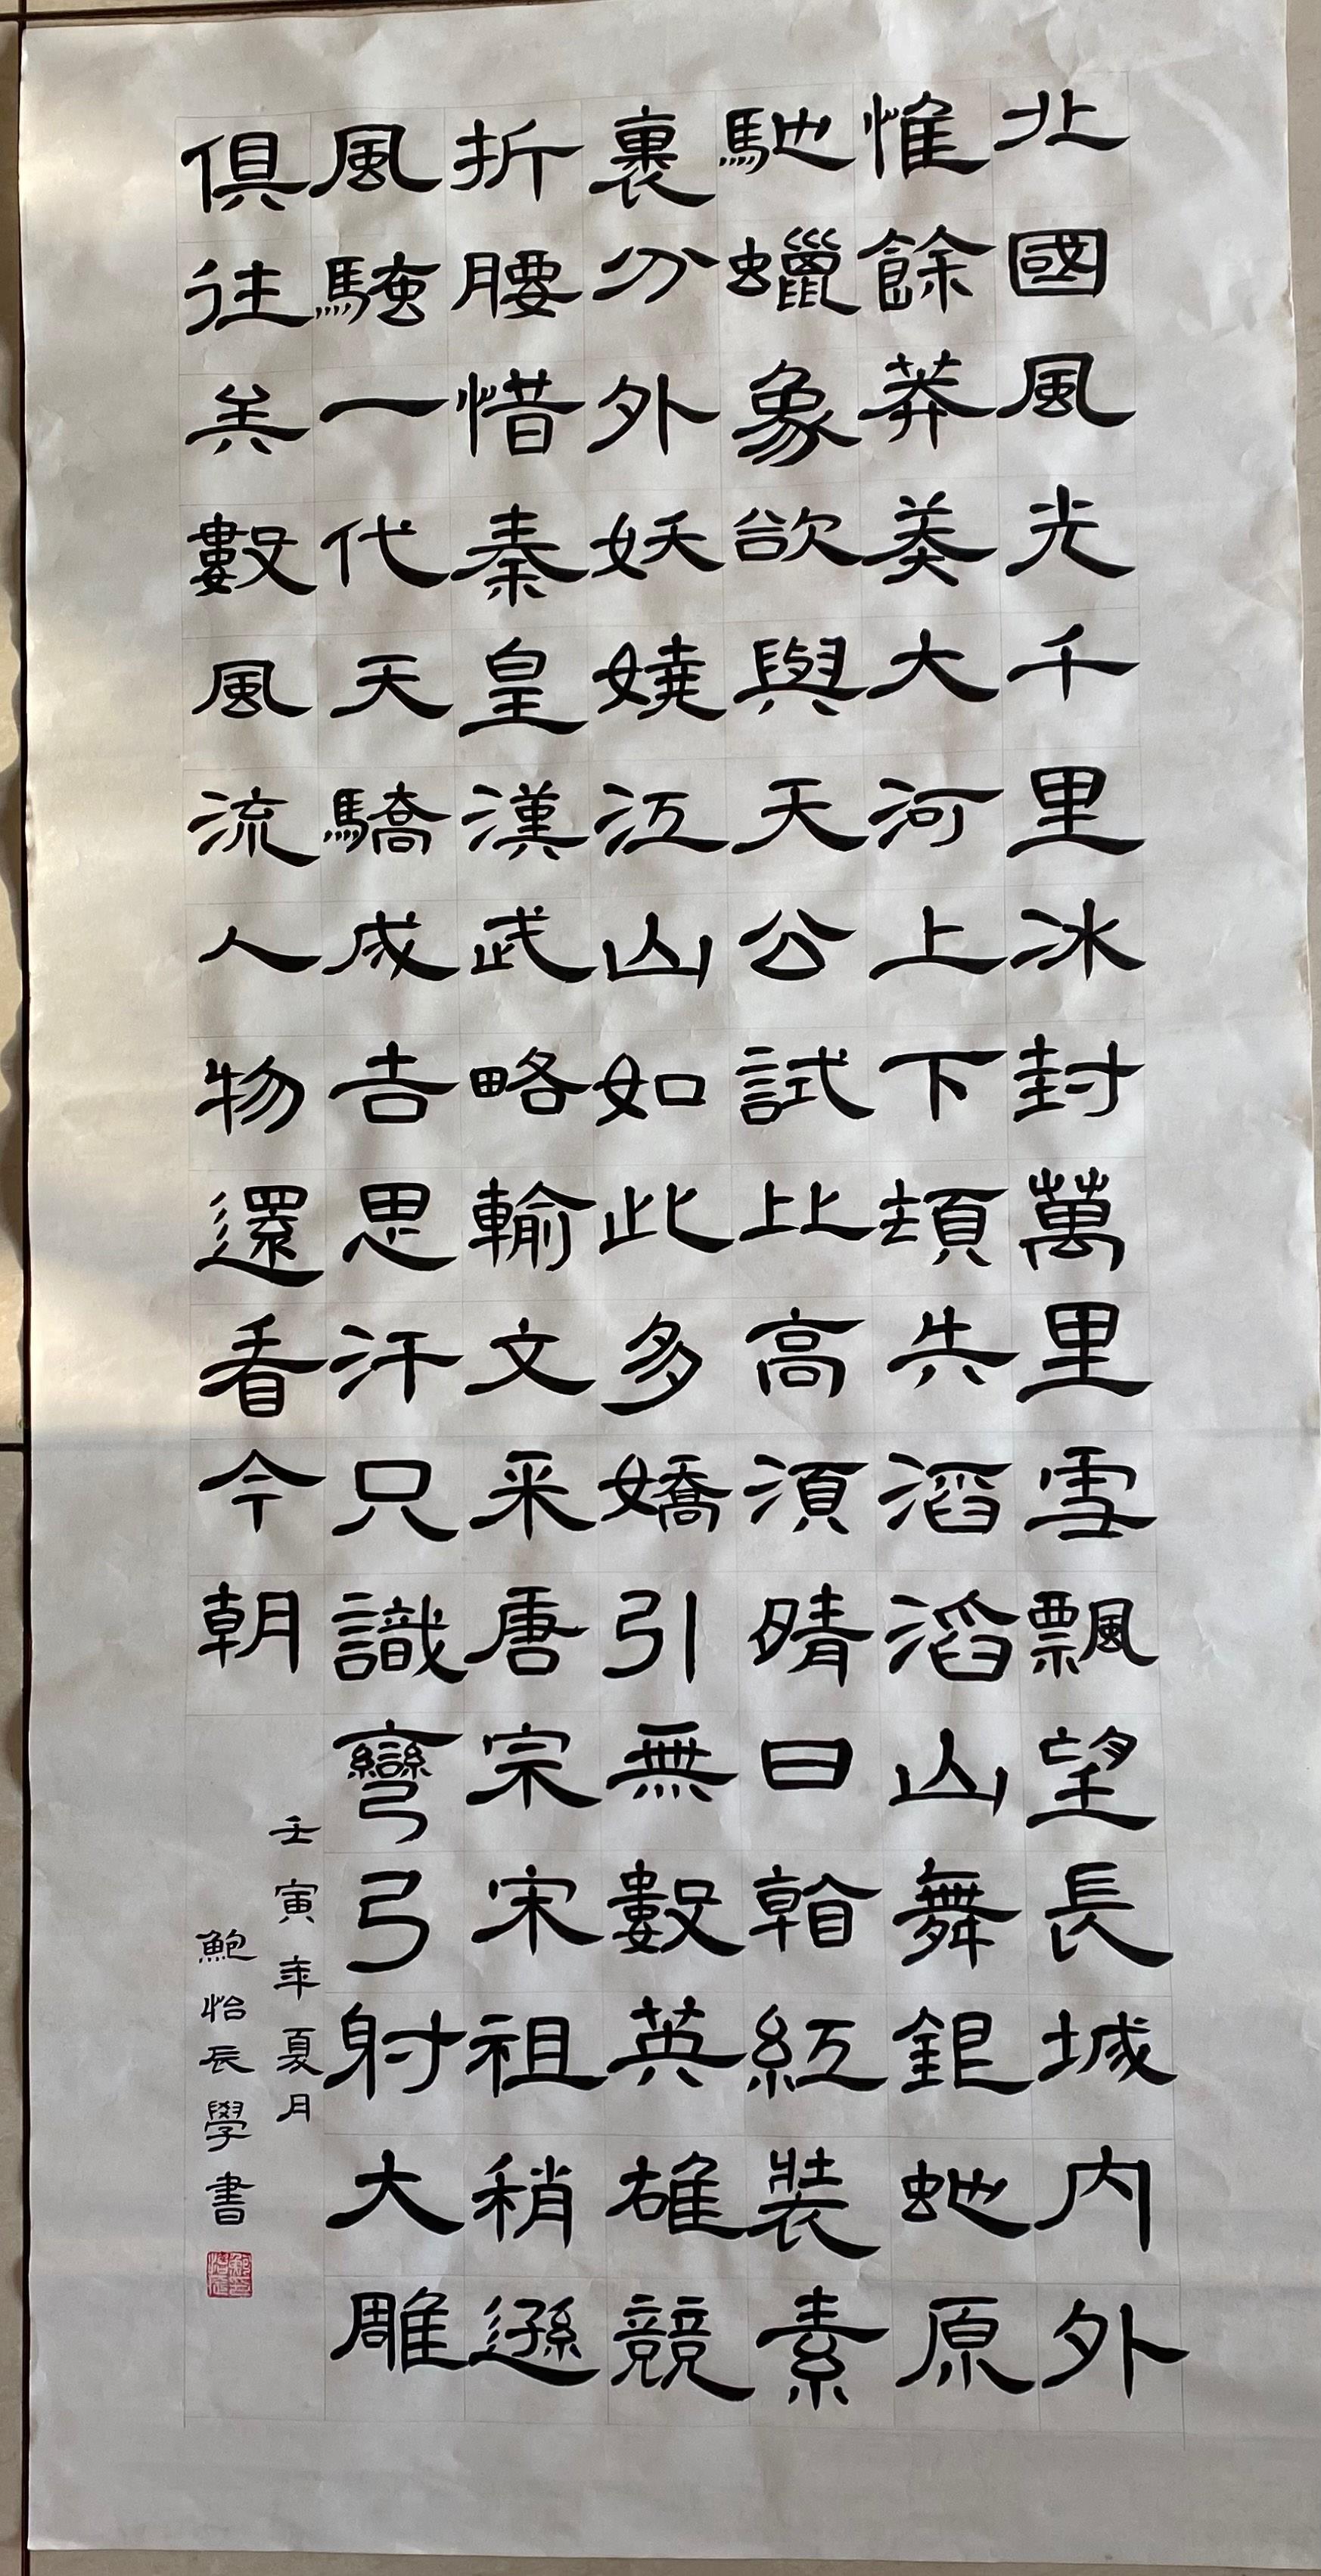 北國風光千里冰封萬里雪飄望長城内外
惟餘莽莽大河上下頓失滔滔山舞銀蛇原
馳蠟象欲與天公試比高須晴日看紅裝素
裹分外妖嬈江山如此多嬌引無數英雄競
折腰惜秦皇漢武略輸文采唐宗宋祖稍遜
風騷一代天驕成吉思汗只識彎弓射大雕
俱往矣數風流人物還看今朝
壬寅年夏月
鮑怡辰學書